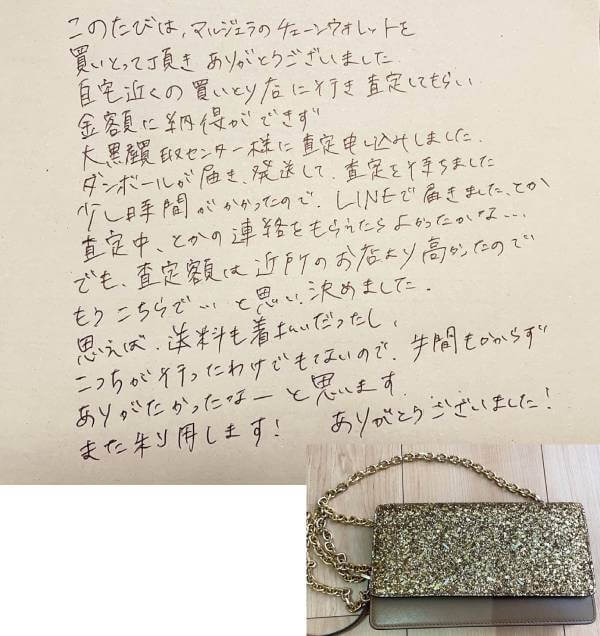 このたびは、マルジェラのチェーンウォレットを
買いとって頂き ありがとうございました
自宅近くの買いとり店に行き 査定してもらい
金額に納得ができず
大黒屋買取センター様に査定申し込みしました。
ダンボールが届き、発送して、査定を待ちました
少し時間がかかったので、LINEで届きました、とか
査定中、とかの連絡をもらえたらよかったかな…
でも、査定額は近所のお店より高かったので
もうこちらで… と思い、決めました。
思えば、送料も着払いだったし、
こっちが行ったわけでもないので、手間もかからず
ありがたかったなーと思います。
また利用します! ありがとうございました!